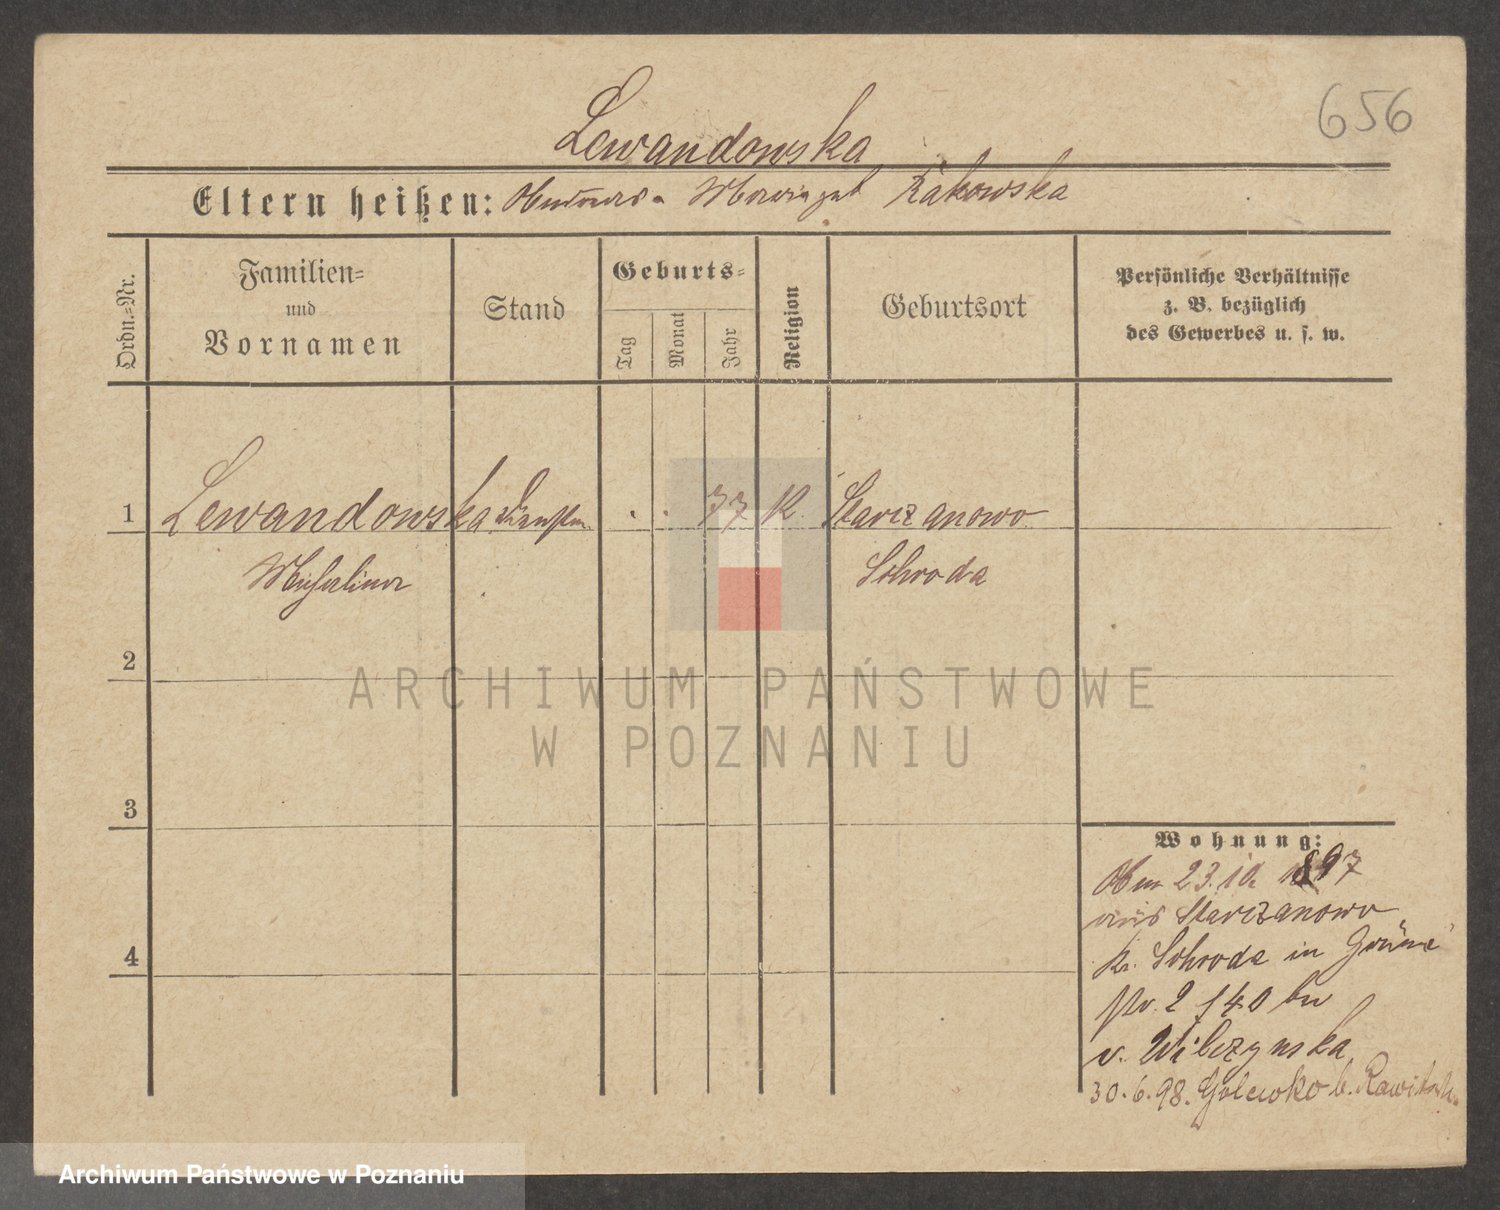 656
Lewandowska
Eltern heißen: Andreas u. Maria geb. Rakowska
Ordn.-Nr.
Familien-
und
Vornamen
Stand
Geburts-
Tag
Monat
Jahr
Religion
Geburtsort
Persönliche Verhältnisse
z. B. bezüglich
des Gewerbes u. s. w.
1 Lewandowska 77 K. Starczanowo
Michalina Schroda
2
ARCHIWUM PAŃSTWOWE
W POZNANIU
3
4
Wohnung:
Am 23. 10. 1897
aus Starczanowo
Kr. Schroda in
v. Wilczynska
30. 6. 98. Golewko b. Rawitsch.
Archiwum Państwowe w Poznaniu